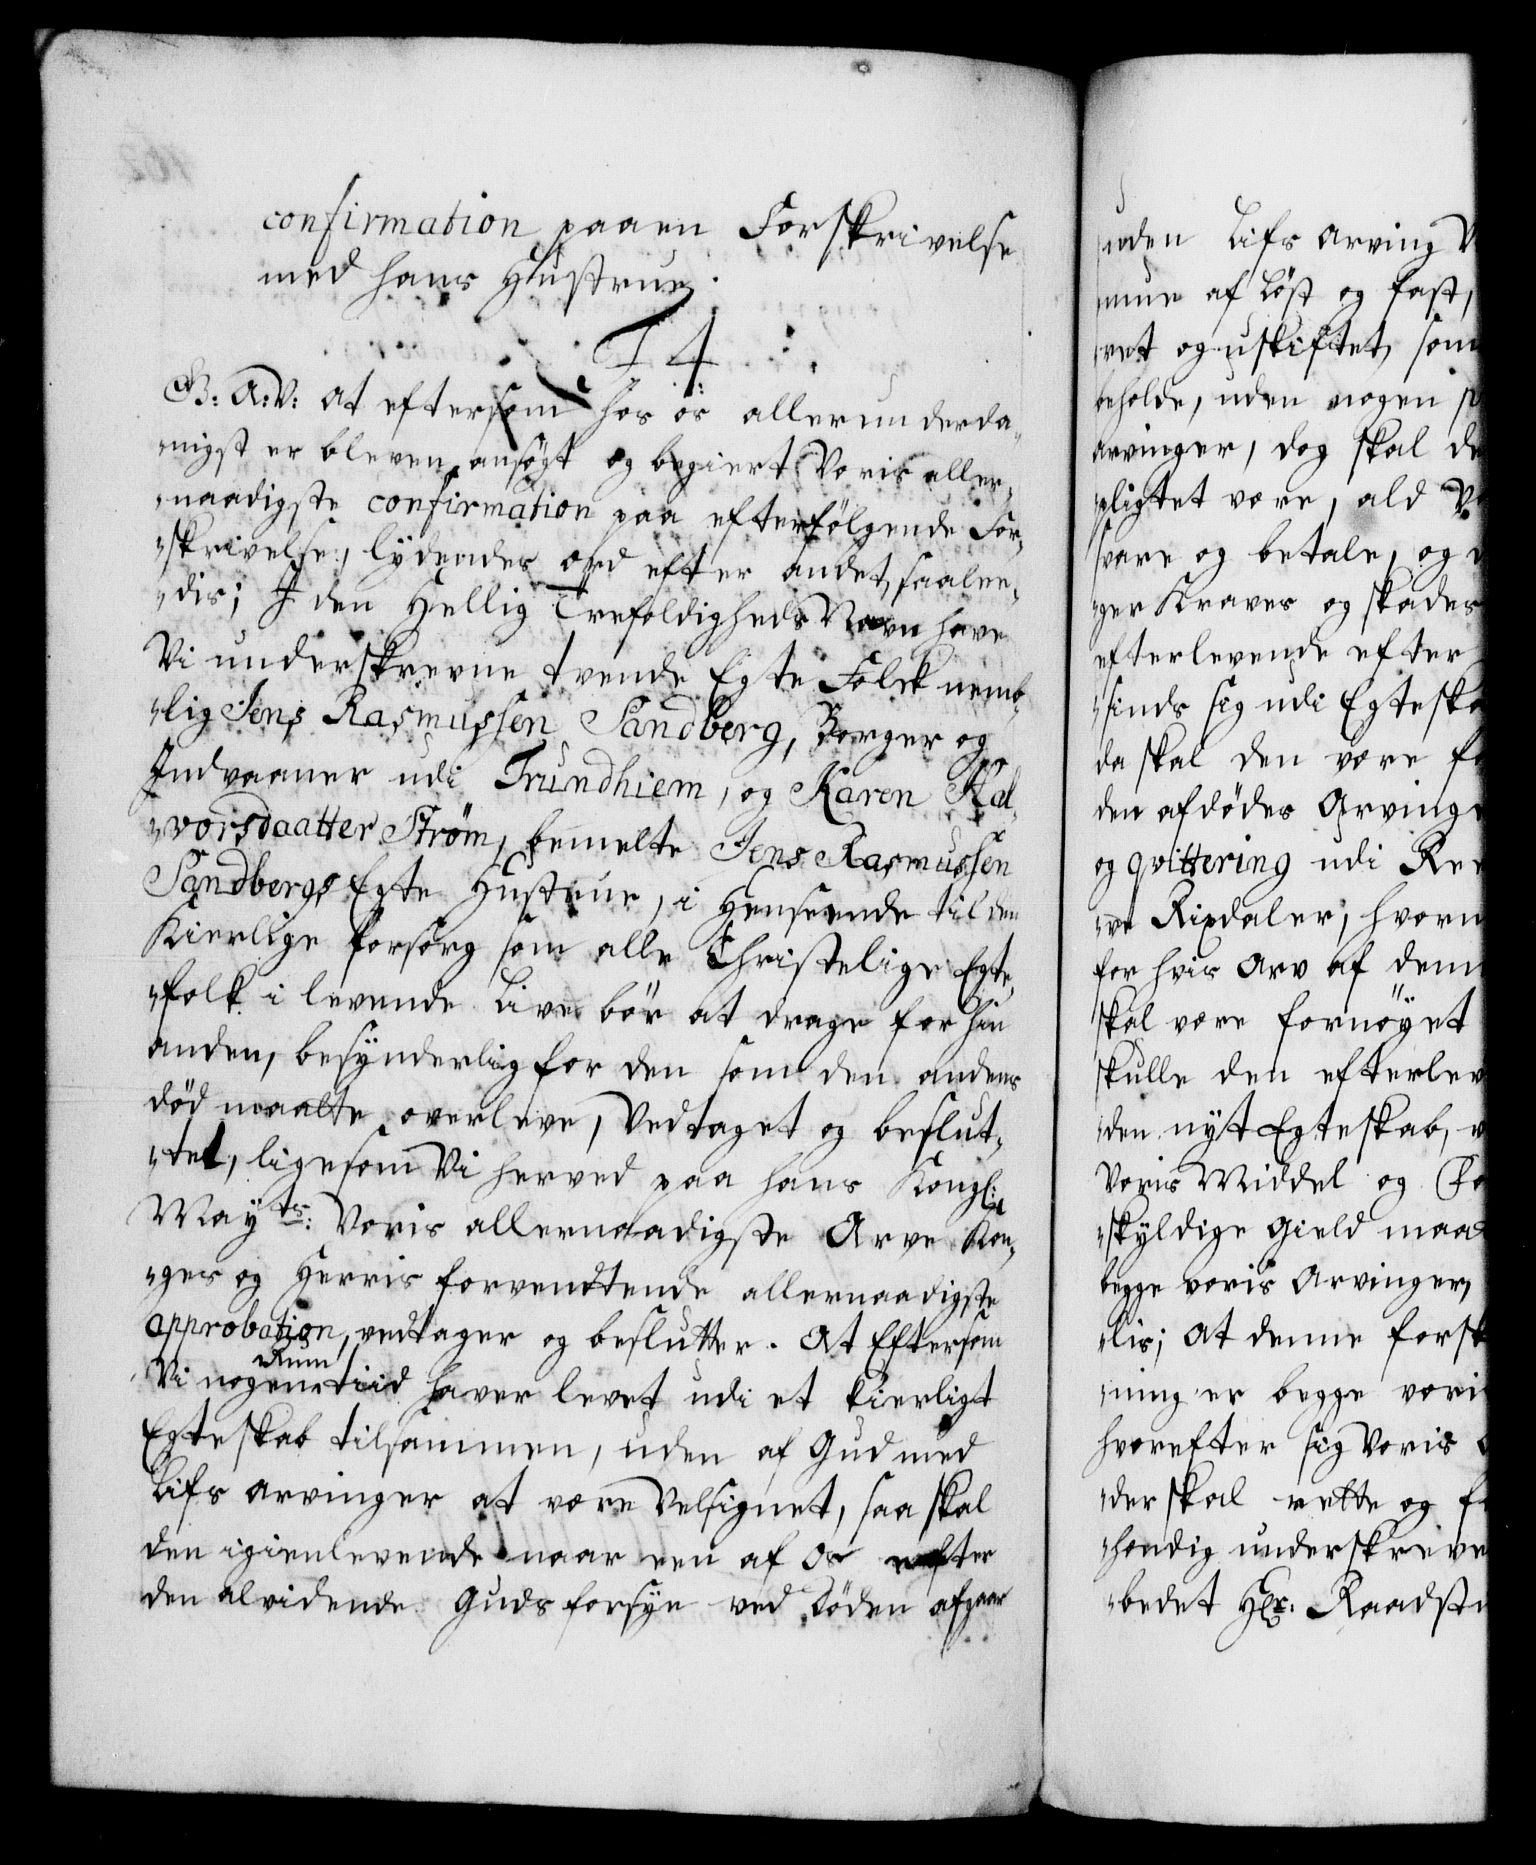 confirmation paa en Forskrivelse
med hans Hustrue
F 4
G: A: V: at eftersom hos os allerunderda-
nigst er bleven ansøgt og begiert Voris aller-
naadigste confirmation paa efterfölgende For-
skrivelse, lydendes ord efter andet, saalee-
dis; I den Hellig Trefoldigheds Navn have
Vi underskrevne tvende Egte Folck nemb-
lig Jens Rasmussen Sandberg, Borger og
Indvaaner udi Trundhiem, og Karen Hal-
vorsdaatter Ström, bemelte Jens Rasmussen
Sandbergs Egte Hustrue, i Henseende til den
Kierlige forsorg som alle Christelige Egte-
folk i levende Live bör at drage for hin
anden, besynderlig for den som den andens
död maatte overleve, Vedtaget og beslut-
tet, ligesom Vi herved paa hans Kongl:
Mayts: Voris allernaadigste Arve Kon-
ges og Herris forventtende allernaadigste
approbation, vedtager og beslutter. At Eftersom
Vi nogen Rum tiid haver levet udi et kierligt
Egteskab tilsammen, uden af Gud med
Lifs arvinger at være Velsignet, saa skal
den igienlevende naar een af os efter
den alvidende Guds forsyn ved Döden afgaar
uden Lifs Arving V
mue af Löst og fast,
vet og uskiftet, som
beholde, uden nogen
Arvinger, dog skal de
pligtet være, ald
svare og betale, og
ger Kraver og skader
efterlevende efter
sinds sig udi Egteska
da skal den være
den afdödes Arvinge
og qvittering udi
ve Rixdaler, hvorm
for hvis Arv af dem
skal være fornöyet
skulle den efterlev
den nyt Egteskab,
Voris Middel og
skyldige Gield maa
begge voris Arvinger,
lis; At denne forsk
ning er begge vori
hvorefter sig Voris
der skal rette og
hændig underskreve
bedet Hr. Raadst